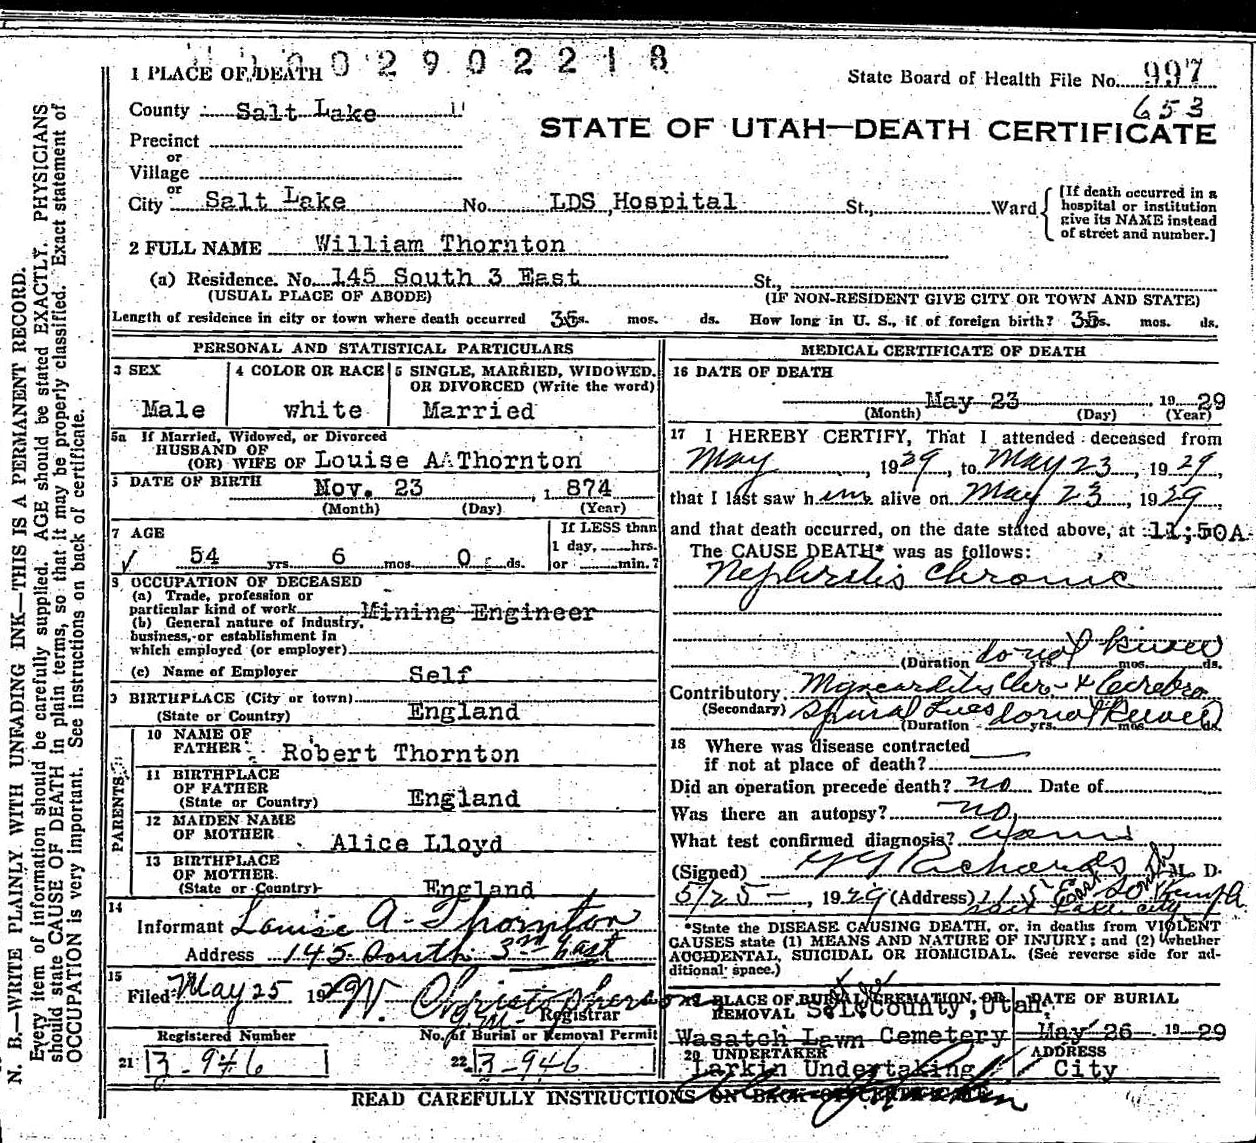 0 0 2 9 0 2 2 1 8
1 PLACE OF DEATH
State Board of Health File No. 997
653
County Salt Lake
STATE OF UTAH—DEATH CERTIFICATE
Precinct
or
Village
or
City Salt Lake No. LDS Hospital St., Ward
[If death occurred in a
hospital or institution
give its NAME instead
of street and number.]
2 FULL NAME William Thornton
(a) Residence. No. 145 South 3 East St.,
(USUAL PLACE OF ABODE) (IF NON-RESIDENT GIVE CITY OR TOWN AND STATE)
Length of residence in city or town where death occurred 35 yrs. mos. ds. How long in U. S., if of foreign birth? 35 yrs. mos. ds.
PERSONAL AND STATISTICAL PARTICULARS
3 SEX
Male
4 COLOR OR RACE
white
5 SINGLE, MARRIED, WIDOWED,
OR DIVORCED (Write the word)
Married
5a If Married, Widowed, or Divorced
HUSBAND OF
(OR) WIFE OF Louise A Thornton
6 DATE OF BIRTH Nov. 23, 1 874
(Month) (Day) (Year)
7 AGE
54 yrs. 6 mos. 0 ds.
If LESS than
1 day, hrs.
or min.?
8 OCCUPATION OF DECEASED
(a) Trade, profession or
particular kind of work Mining Engineer
(b) General nature of industry,
business, or establishment in
which employed (or employer)
(c) Name of Employer Self
9 BIRTHPLACE (City or town)
(State or Country) England
PARENTS
10 NAME OF
FATHER Robert Thornton
11 BIRTHPLACE
OF FATHER
(State or Country) England
12 MAIDEN NAME
OF MOTHER Alice Lloyd
13 BIRTHPLACE
OF MOTHER
(State or Country) England
14
Informant Louise A. Thornton
Address 145 South 3rd East
15
Filed May 25 192 W. Christopherson
Registrar
Registered Number
21 3-946
No. of Burial or Removal Permit
22 3-946
MEDICAL CERTIFICATE OF DEATH
16 DATE OF DEATH
May 23, 19 29
(Month) (Day) (Year)
17 I HEREBY CERTIFY, That I attended deceased from
May, 1929, to May 23, 1929,
that I last saw him alive on May 23, 1929
and that death occurred, on the date stated above, at 11;50A.
The CAUSE DEATH* was as follows:
Nephritis Chronic
(Duration do not know yrs. mos. ds.
Contributory Myocarditis Chr. & Cerebro
(Secondary) Spinal Lues
(Duration do not know yrs. ds.
18 Where was disease contracted
if not at place of death?
Did an operation precede death? no Date of
Was there an autopsy? no
What test confirmed diagnosis?
(Signed) Richards M. D.
5/25-, 1929 (Address)
Salt Lake City
*State the DISEASE CAUSING DEATH, or, in deaths from VIOLENT
CAUSES state (1) MEANS AND NATURE OF INJURY; and (2) whether
ACCIDENTAL, SUICIDAL OR HOMICIDAL. (See reverse side for ad-
ditional space.)
19 PLACE OF BURIAL, CREMATION, OR
REMOVAL County, Utah.
Wasatch Lawn Cemetery
DATE OF BURIAL
May 26, 19 29
20 UNDERTAKER
Larkin Undertaking
ADDRESS
City
READ CAREFULLY INSTRUCTIONS ON BACK OF CERTIFICATE
N. B.—WRITE PLAINLY WITH UNFADING INK—THIS IS A PERMANENT RECORD.
Every item of information should be carefully supplied. AGE should be stated EXACTLY. PHYSICIANS
should state CAUSE OF DEATH in plain terms, so that it may be properly classified. Exact statement of
OCCUPATION is very important. See instructions on back of certificate.